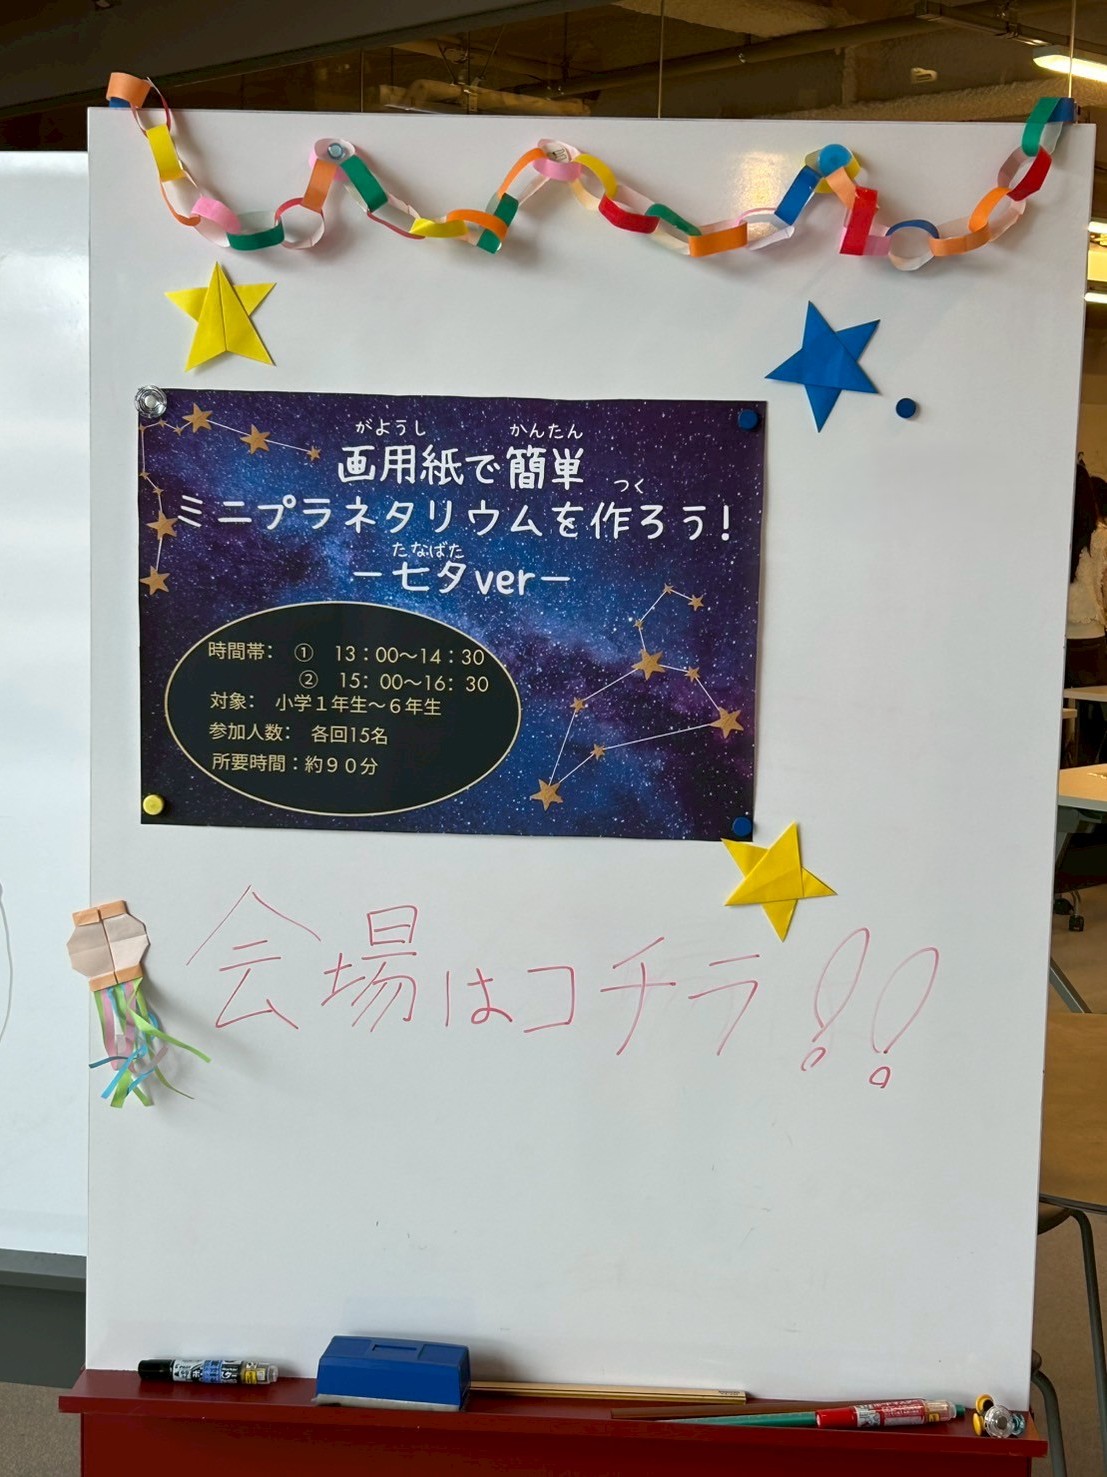 がようし かんたん
画用紙で簡単
つく
ミニプラネタリウムを作ろう!
たなばた
ー七夕verー
時間帯: ① 13:00〜14:30
② 15:00〜16:30
対象: 小学1年生〜6年生
参加人数: 各回15名
所要時間:約90分
会場はコチラ!!